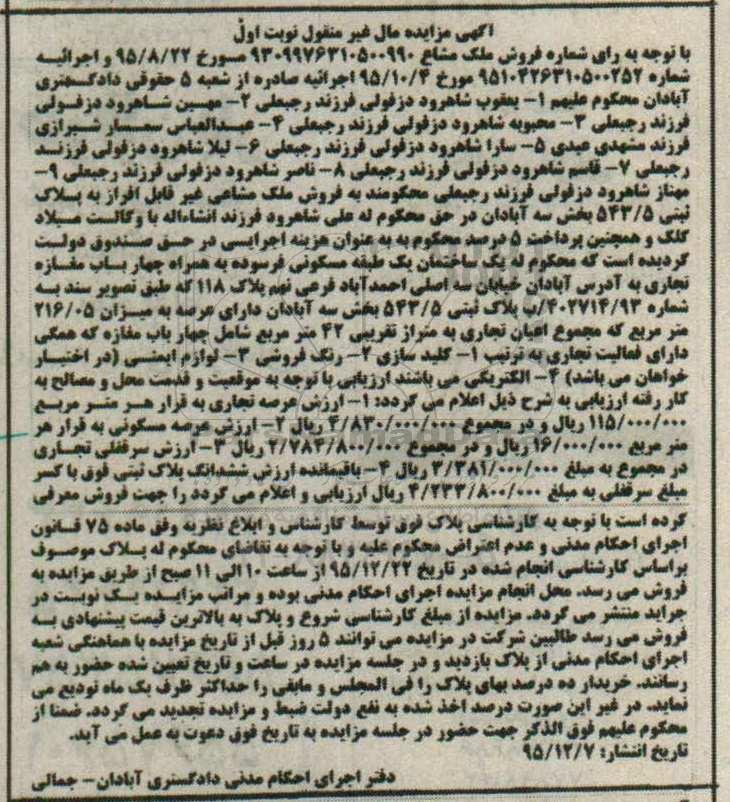 آگهی مزایده مال غیر منقول نوبت اول
با توجه به رای شماره فروش ملک مشاع ۹۳۰۹۹۷۶۳۱۰۵۰۰۹۹۰ مورخ ۹۵/۸/۲۲ و اجرائیه
شماره ۹۵۱۰۴۲۶۳۱۰۵۰۰۲۵۲ مورخ ۹۵/۱۰/۴ اجرائیه صادره از شعبه ۵ حقوقی دادگستری
آبادان محکوم علیهم ۱- یعقوب شاهرود دزفولی فرزند رجبعلی ۲- مهین شاهرود دزفولی
فرزند رجبعلی ۳- محبوبه شاهرود دزفولی فرزند رجبعلی ۴- عبدالعباس سمسار شیرازی
فرزند مشهدی عیدی ۵- سارا شاهرود دزفولی فرزند رجبعلی ۶- لیلا شاهرود دزفولی فرزند
رجبعلی ۷- قاسم شاهرود دزفولی فرزند رجبعلی ۸- ناصر شاهرود دزفولی فرزند رجبعلی ۹-
مهناز شاهرود دزفولی فرزند رجبعلی محکومند به فروش ملک مشاعی غیر قابل افراز به پلاک
ثبتی ۵۴۳/۵ بخش سه آبادان در حق محکوم له علی شاهرود فرزند انشاءاله با وکالت میلاد
کلک و همچنین پرداخت ۵ درصد محکوم به به عنوان هزینه اجرایی در حق صندوق دولت
گردیده است که محکوم له یک ساختمان یک طبقه مسکونی فرسوده به همراه چهار باب مغازه
تجاری به آدرس آبادان خیابان سه اصلی احمدآباد فرعی نهم پلاک ۱۱۸ که طبق تصویر سند به
شماره ۴۰۲۷۱۴/۹۳/ب پلاک ثبتی ۵۴۳/۵ بخش سه آبادان دارای عرصه به میزان ۲۱۶/۰۵
متر مربع که مجموع اعیان تجاری به متراژ تقریبی ۴۲ متر مربع شامل چهار باب مغازه که همگی
دارای فعالیت تجاری به ترتیب ۱- کلید سازی ۲- رنگ فروشی ۳- لوازم ایمنی (در اختیار
خواهان می باشد) ۴- الکتریکی می باشند ارزیابی با توجه به موقعیت و قدمت محل و مصالح به
کار رفته ارزیابی به شرح ذیل اعلام می گردد: ۱- ارزش عرصه تجاری به قرار هر متر مربع
۱۱۵/۰۰۰/۰۰۰ ریال و در مجموع ۴/۸۳۰/۰۰۰/۰۰۰ ریال ۲- ارزش عرصه مسکونی به قرار هر
متر مربع ۱۶/۰۰۰/۰۰۰ ریال و در مجموع ۲/۷۸۴/۸۰۰/۰۰۰ ریال ۳- ارزش سرقفلی تجاری
در مجموع به مبلغ ۳/۳۸۱/۰۰۰/۰۰۰ ریال ۴- باقیمانده ارزش ششدانگ پلاک ثبتی فوق با کسر
مبلغ سرقفلی به مبلغ ۴/۲۳۳/۸۰۰/۰۰۰ ریال ارزیابی و اعلام می گردد را جهت فروش معرفی
کرده است با توجه به کارشناسی پلاک فوق توسط کارشناس و ابلاغ نظریه وفق ماده ۷۵ قانون
اجرای احکام مدنی و عدم اعتراض محکوم علیه و با توجه به تقاضای محکوم له پلاک موصوف
براساس کارشناسی انجام شده در تاریخ ۹۵/۱۲/۲۲ از ساعت ۱۰ الی ۱۱ صبح از طریق مزایده به
فروش می رسد. محل انجام مزایده اجرای احکام مدنی بوده و مراتب مزایده یک نوبت در
جراید منتشر می گردد. مزایده از مبلغ کارشناسی شروع و پلاک به بالاترین قیمت پیشنهادی به
فروش می رسد طالبین شرکت در مزایده می توانند ۵ روز قبل از تاریخ مزایده با هماهنگی شعبه
اجرای احکام مدنی از پلاک بازدید و در جلسه مزایده در ساعت و تاریخ تعیین شده حضور به هم
رسانند. خریدار ده درصد بهای پلاک را فی المجلس و مابقی را حداکثر ظرف یک ماه تودیع می
نماید. در غیر این صورت درصد اخذ شده به نفع دولت ضبط و مزایده تجدید می گردد. ضمنا از
محکوم علیهم فوق الذکر جهت حضور در جلسه مزایده به تاریخ فوق دعوت به عمل می آید.
تاریخ انتشار: ۹۵/۱۲/۷
دفتر اجرای احکام مدنی دادگستری آبادان- جمالی